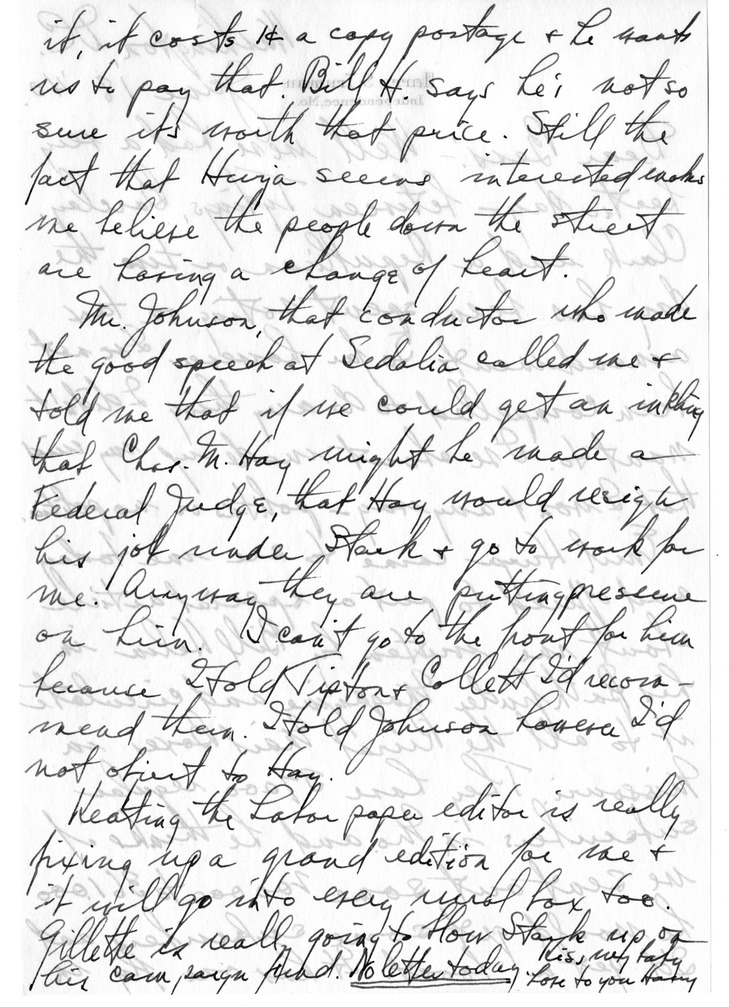 it, it costs 1¢ a copy postage & he wants
us to pay that. Bill H. says he's not so
sure it's worth that price. Still the
fact that Hurja seems interested makes
me believe the people down the street
are having a change of heart.
Mr. Johnson, that conductor who made
the good speech at Sedalia called me &
told me that if we could get an inkling
that Chas. M. Hay might be made a
Federal Judge, that Hay would resign
his job under Stark & go to work for
me. Anyway they are putting pressure
on him. I can't go to the front for him
because I told Tipton & Collett I'd recom-
mend them. I told Johnson however I'd
not object to Hay.
Keating the Labor paper editor is really
fixing up a grand edition for me &
it will go into every rural box too.
Gillette is really going to blow Stark up on
his campaign fund. No letter today. Kiss my baby
Love to you Harry